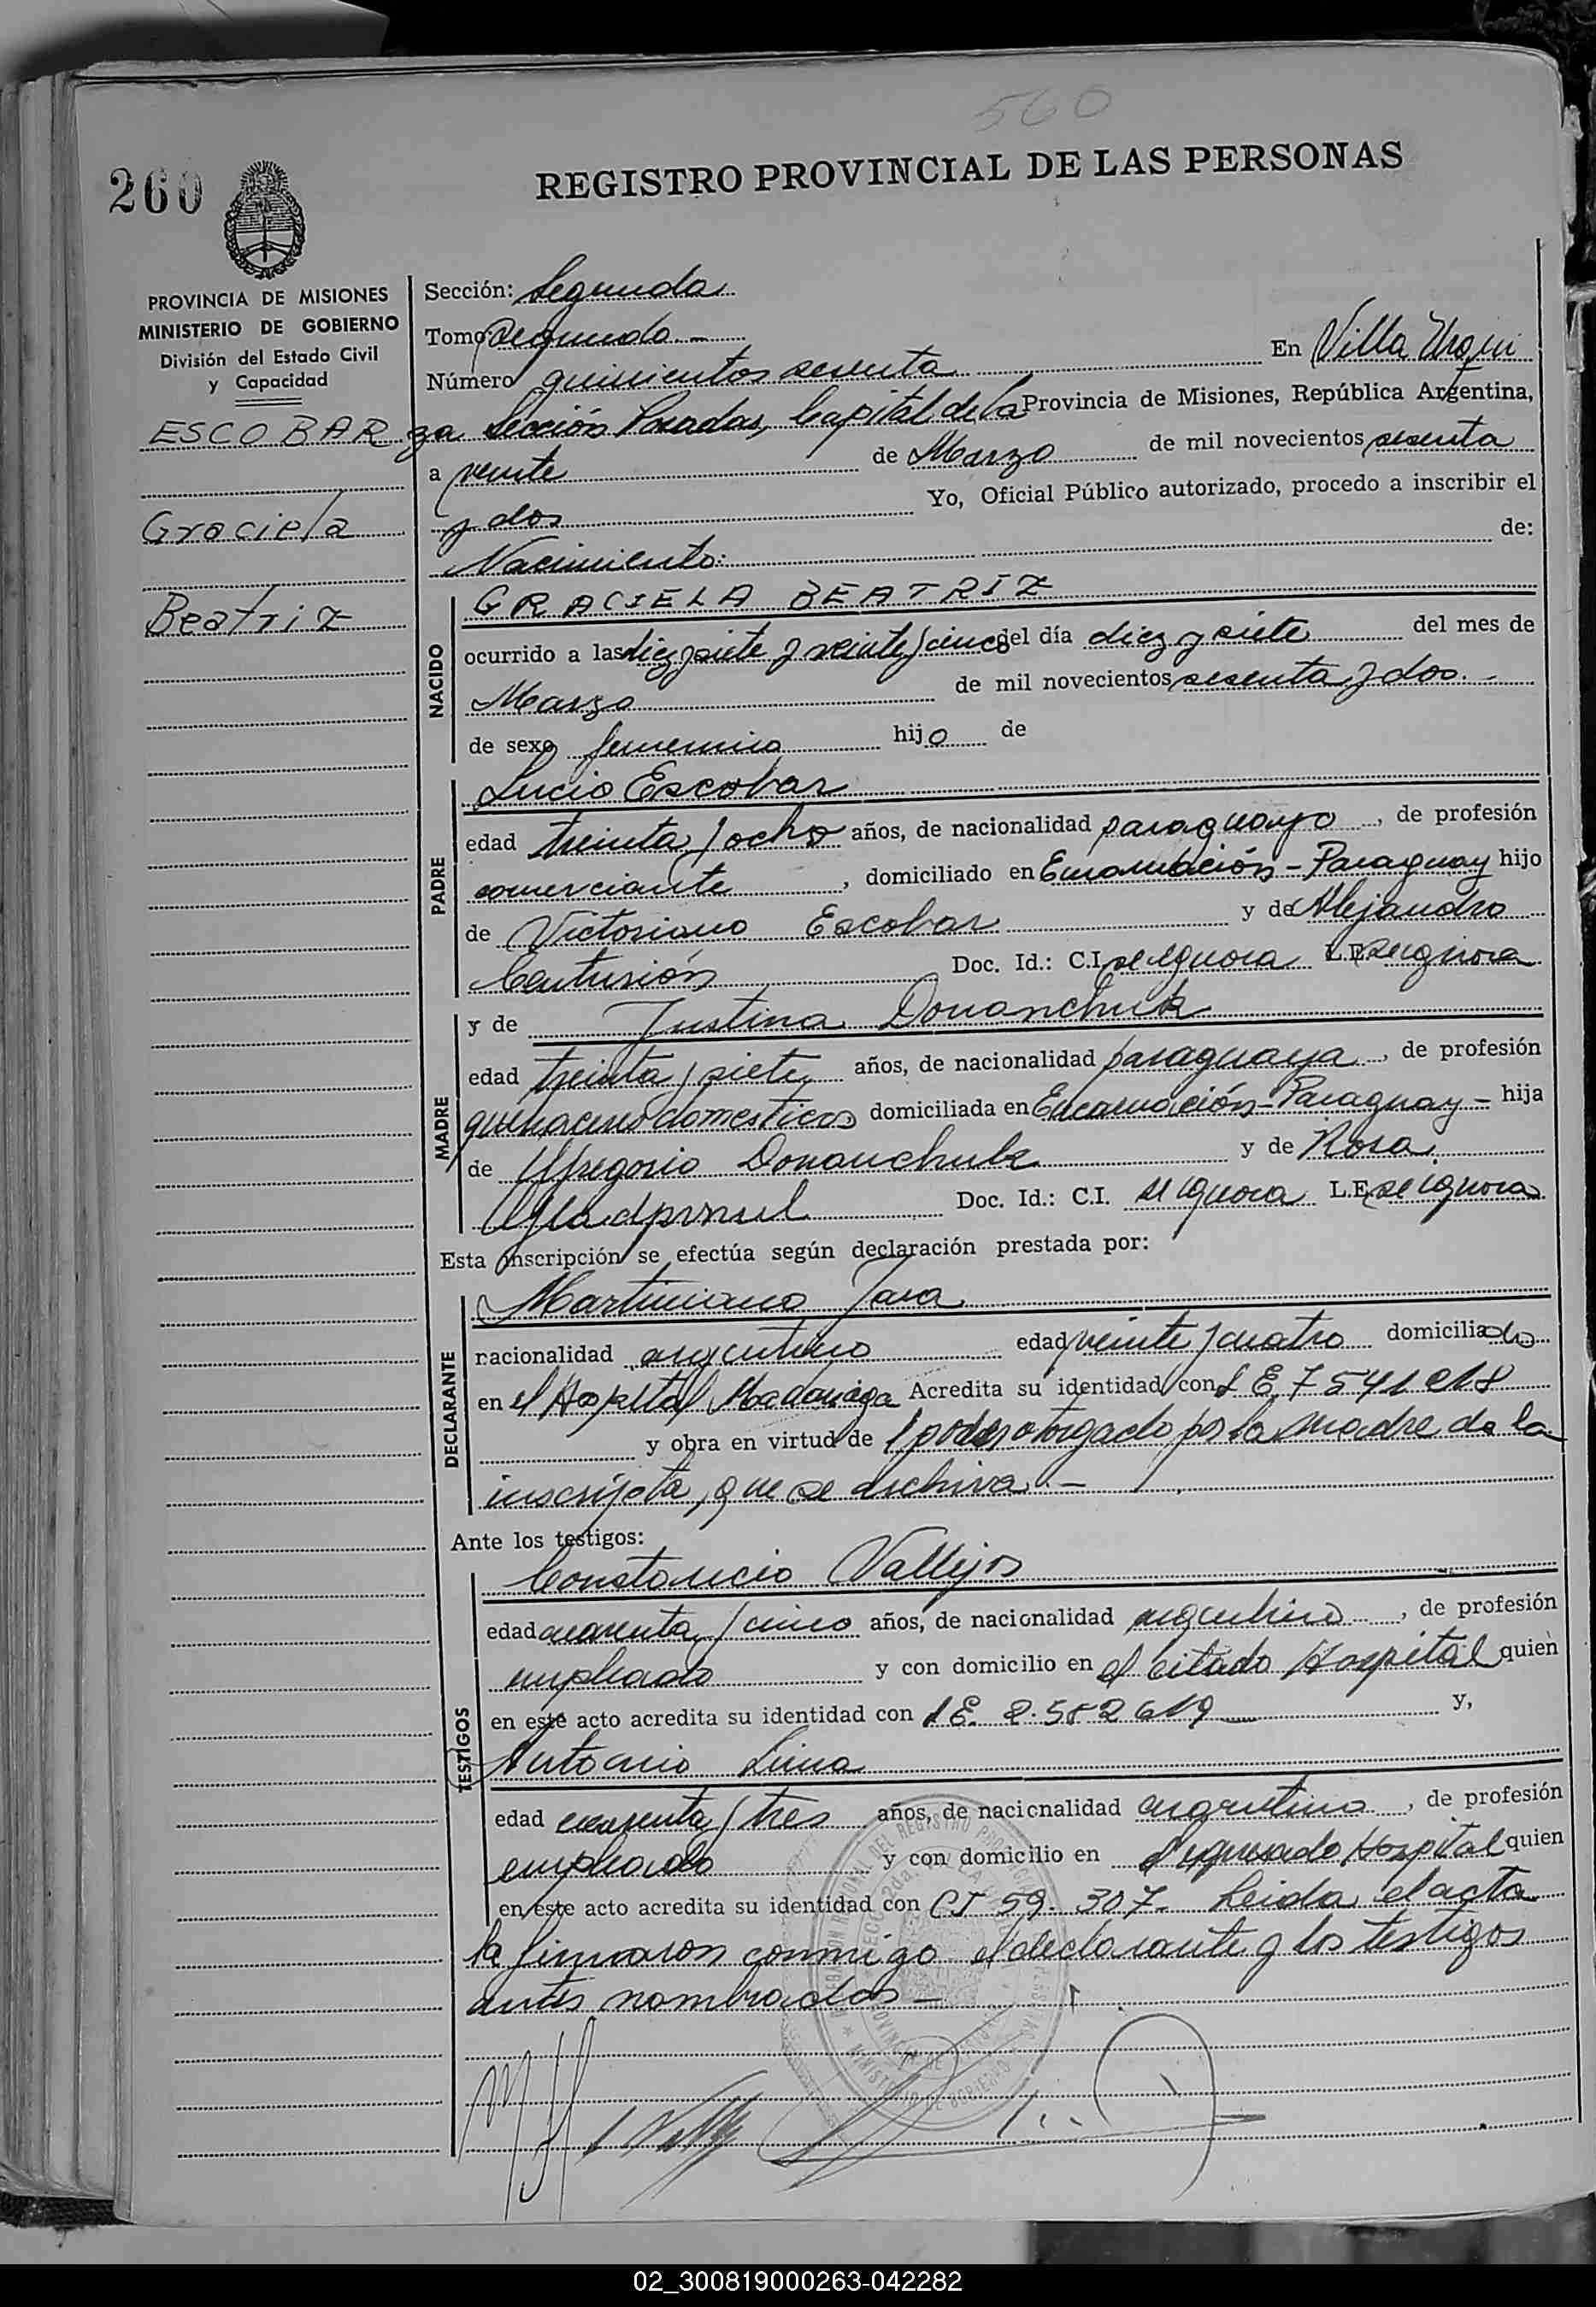 560
260
REGISTRO PROVINCIAL DE LAS PERSONAS
PROVINCIA DE MISIONES
MINISTERIO DE GOBIERNO
División del Estado Civil
y Capacidad
ESCOBAR
Graciela
Beatriz
Sección: Segunda
Tomo segundo.-
Número quinientos sesenta En Villa Urqui
za Sección Posadas, Capital de la Provincia de Misiones, República Argentina,
a veinte de Marzo de mil novecientos sesenta
y dos Yo, Oficial Público autorizado, procedo a inscribir el
Nacimiento: de:
NACIDO
GRACIELA BEATRIZ
ocurrido a las diez y siete y veinte y cinco del día diez y siete del mes de
Marzo de mil novecientos sesenta y dos.-
de sexo femenino hijo de
PADRE
Lucio Escobar
edad treinta y ocho años, de nacionalidad paraguayo, de profesión
comerciante, domiciliado en Encarnación - Paraguay hijo
de Victoriano Escobar y de Alejandra
Centurión Doc. Id.: C.I. se ignora L.E. se ignora
MADRE
y de Justina Donanchuk
edad treinta y siete años, de nacionalidad paraguaya, de profesión
quehaceres domesticos domiciliada en Encarnación - Paraguay - hija
de Gregorio Donanchuk y de Rosa
Doc. Id.: C.I. se ignora L.E. se ignora
Esta inscripción se efectúa según declaración prestada por:
DECLARANTE
Martiniano Jara
nacionalidad argentino edad veinte y cuatro domiciliado
en el Hospital Madariaga Acredita su identidad con L E. 7541218
y obra en virtud de l poder otorgado por la madre de la
inscripta, que se archiva.-
Ante los testigos:
TESTIGOS
Constancio Vallejos
edad cuarenta y cinco años, de nacionalidad argentino, de profesión
empleado y con domicilio en el citado Hospital quien
en este acto acredita su identidad con L E. 2.582619 y,
Antonio Lima
edad cuarenta y tres años, de nacionalidad argentino, de profesión
empleado y con domicilio en el expresado Hospital quien
en este acto acredita su identidad con CI 59.307. Leida el acta
la firmaron conmigo el declarante y los testigos
antes nombrados -
02_300819000263-042282